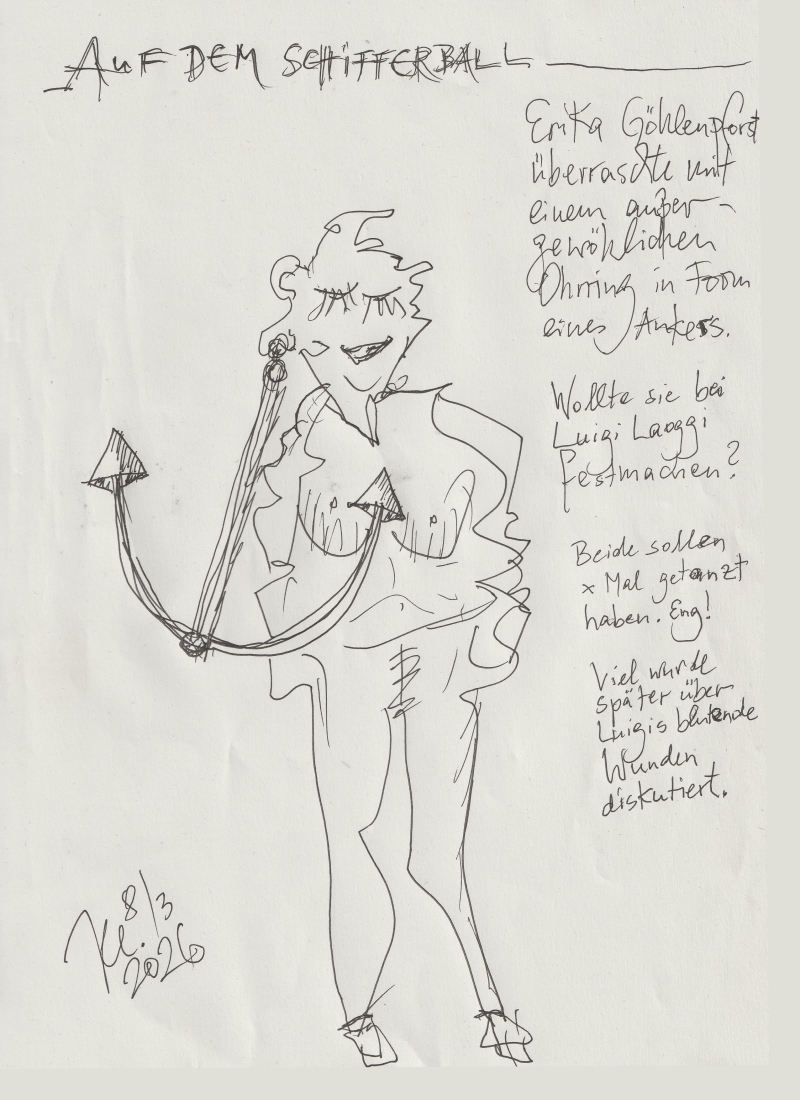 AUF DEM SCHIFFERBALL
Erika Göhlenpforst
überraschte mit
einem außer-
gewöhlichen
Ohrring in Form
eines Ankers.
Wollte sie bei
Luigi Laoggi
festmachen?
Beide sollen
x Mal getanzt
haben. Eng!
Viel wurde
später über
Luigis blutende
Wunden
diskutiert.
8/3
2026